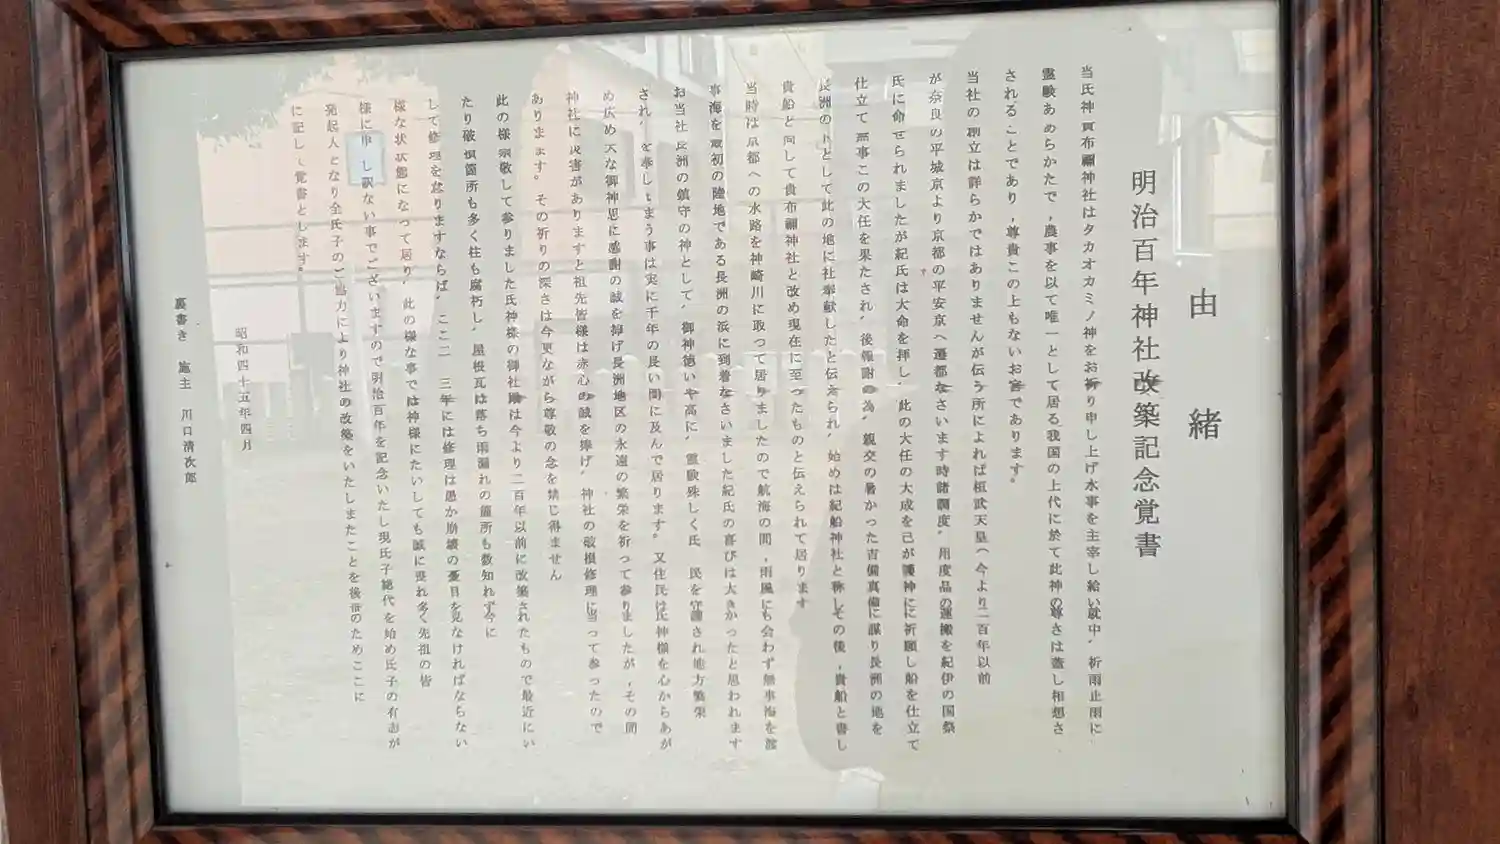 由緒
明治百年神社改築記念覚書
当氏神貴布禰神社はタカオカミノ神をお祈り申し上げ水事を主宰し給い就中、祈雨止雨に
霊験あめらかたで、農事を以て唯一として居る我国の上代に於て此神の尊さは蓋し相想さ
されることであり、尊貴この上もないお宮であります。
当社の創立は詳らかではありませんが伝う所によれば桓武天皇（今より二百年以前
が奈良の平城京より京都の平安京へ遷都なさいます時諸調度、用度品の運搬を紀伊の国祭
氏に命ぜられましたが紀氏は大命を拝し、此の大任の大成を己が護神にに祈願し船を仕立て
仕立て無事この大任を果たされ、後報謝の為、親交の暑かった吉備真備に謀り長洲の地を
長洲の卜として此の地に社奉献したと伝えられ、始めは紀船神社と称しその後、貴船と書し
貴船と同して貴布禰神社と改め現在に至ったものと伝えられて居ります
当時は京都への水路を神崎川に取って居りましたので航海の間、雨風にも会わず無事海を渡
事海を最初の陸地である長洲の浜に到着なさいました紀氏の喜びは大きかったと思われます
お当社長洲の鎮守の神として、御神徳いや高に、霊験殊しく氏 民を守護され地方繁栄
され、を挙しまう事は実に千年の長い間に及んで居ります。又住民は氏神様を心からあが
め広め大な御神恩に感謝の誠を捧げ長洲地区の永遠の繁栄を祈って参りましたが、その間
神社に災害がありますと祖先皆様は赤心の誠を捧げ、神社の破損修理に当って参ったので
あります。その祈りの深さは今更ながら尊敬の念を禁じ得ません
此の様崇敬して参りました氏神様の御社殿は今より二百年以前に改築されたもので最近にい
たり破損箇所も多く柱も腐朽し、屋根瓦は落ち雨漏れの箇所も数知れず今に
して修理を怠りますならば、ここ二 三年には修理は愚か崩壊の憂目を見なければならない
様な状状態になって居り、此の様な事では神様にたいしても誠に恐れ多く先祖の皆
様に申し訳ない事でございますので明治百年を記念いたし現氏子総代を始め氏子の有志が
発起人となり全氏子のご協力により神社の改築をいたしまたことを後世のためここに
に記し覚書とします。
昭和四十五年四月
裏書き 施主 川口清次郎